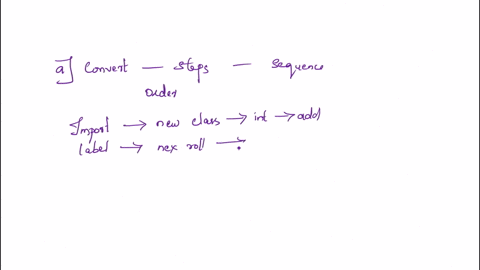 a] Convert — steps — sequence
order
Import → new class → int → add
label → nex roll →